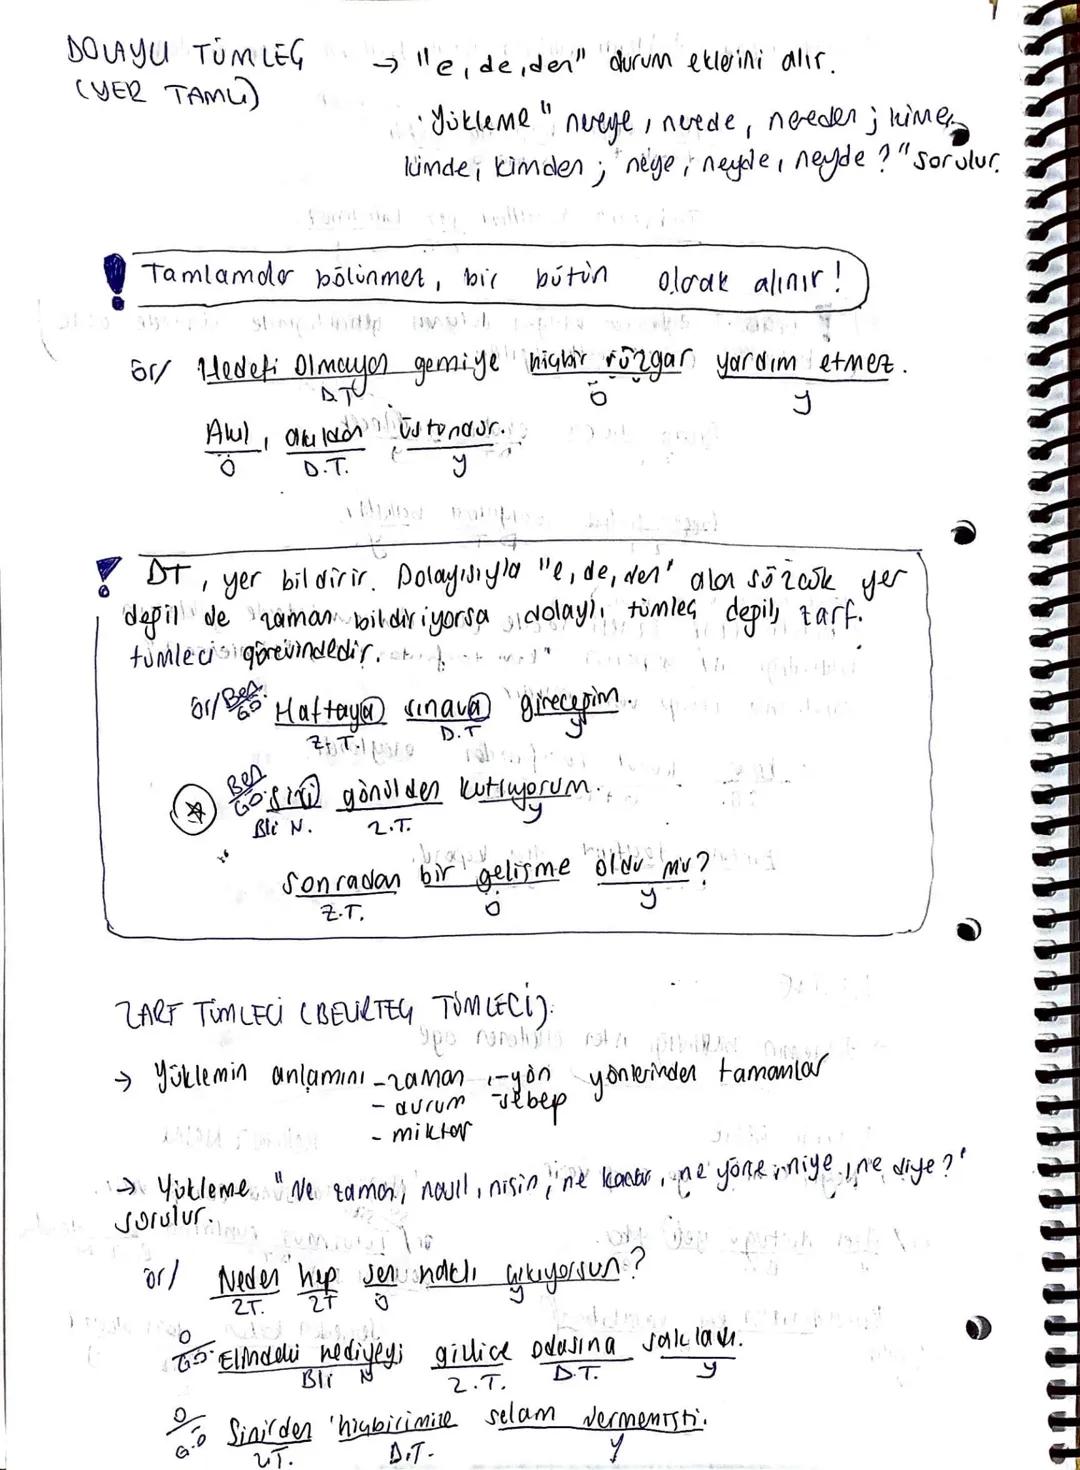 DOLAYLI TÜMLEÇ → "e, de, den" durum eklerini alır.
(YER TAML)
· Yükleme "nereye, nerede, nereden; kime,
kimde, kimden; neye, neyde, neyde?" sorulur.
! Tamlamalar bölünmez, bir bütün olarak alınır!
ör/ Hedefi olmayan gemiye hiçbir rüzgar yardım etmez.
D.T Ö y
Akıl, akıldan üstündür.
Ö D.T. y
! DT, yer bildirir. Dolayısıyla "e, de, den" alan sözcük yer
değil de zaman bildiriyorsa dolaylı tümleç değil, zarf.
tümleci görevindedir.
ör/ Ben Haftaya sınava gireceğim.
GÖ. Z.T. D.T y
Ben Sizi gönülden kutluyorum.
GÖ. Bli N. Z.T. y
Sonradan bir gelişme oldu mu?
Z.T. Ö y
ZARF TÜMLECİ (BELİRTEÇ TÜMLECİ):
→ Yüklemin anlamını -zaman, -yön yönlerinden tamamlar
- durum -sebep
- miktar
→ Yükleme "Ne zaman, nasıl, niçin, ne kadar, ne yöne, niye, ne diye?"
sorulur.
ör/ Neden hep sen haklı çıkıyorsun?
ZT. ZT Ö y
O Elindeki hediyeyi gizlice odasına sakladı.
GÖ. Bli N Z.T. D.T. y
O Sinirden hiçbirimize selam vermemişti.
G.Ö ZT. D.T. y